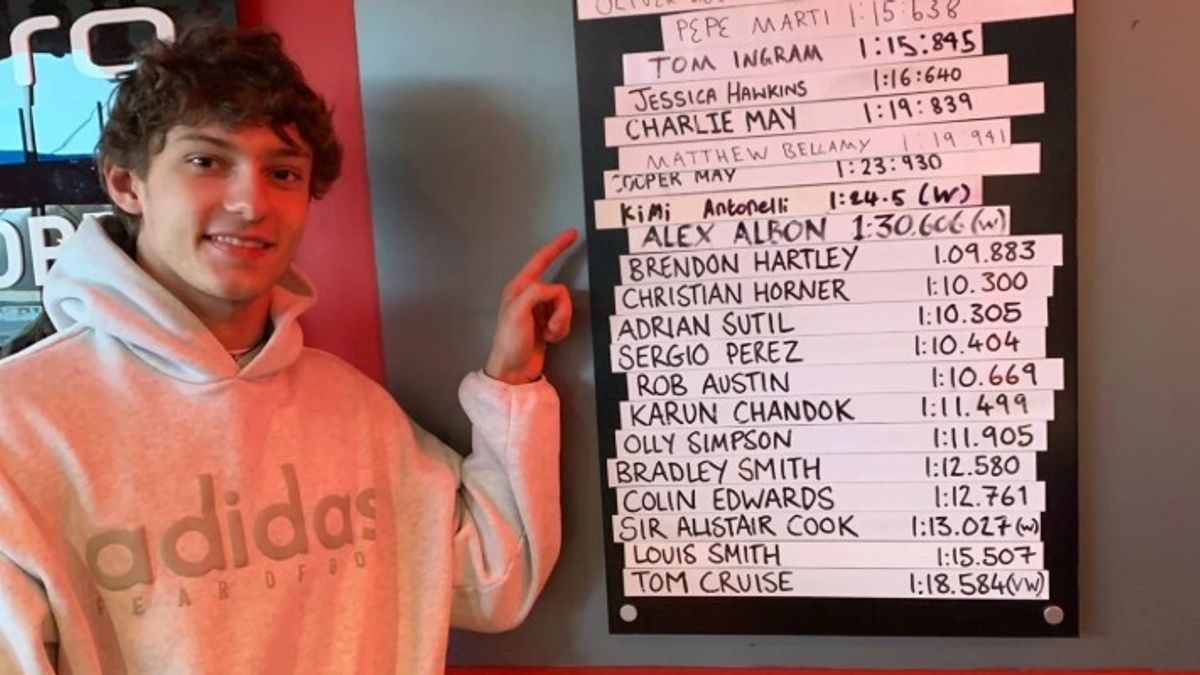 ro
OR
adidas
FEAR OF GO
PEPE MARTI 1:15:638
TOM INGRAM 1:15:845
JESSICA HAWKINS 1:16:640
CHARLIE MAY 1:19:839
MATTHEW BELLAMY 1:19:941
COOPER MAY 1:23:930
KiMi Antonelli 1:24.5 (W)
ALEX ALBON 1:30.606 (W)
BRENDON HARTLEY 1.09.883
CHRISTIAN HORNER 1:10.300
ADRIAN SUTIL 1:10.305
SERGIO PEREZ 1:10.404
ROB AUSTIN 1:10.669
KARUN CHANDOK 1:11.499
OLLY SIMPSON 1:11.905
BRADLEY SMITH 1:12.580
COLIN EDWARDS 1:12.761
SIR ALISTAIR COOK 1:13.027(w)
LOUIS SMITH 1:15.507
TOM CRUISE 1:18.584(vw)